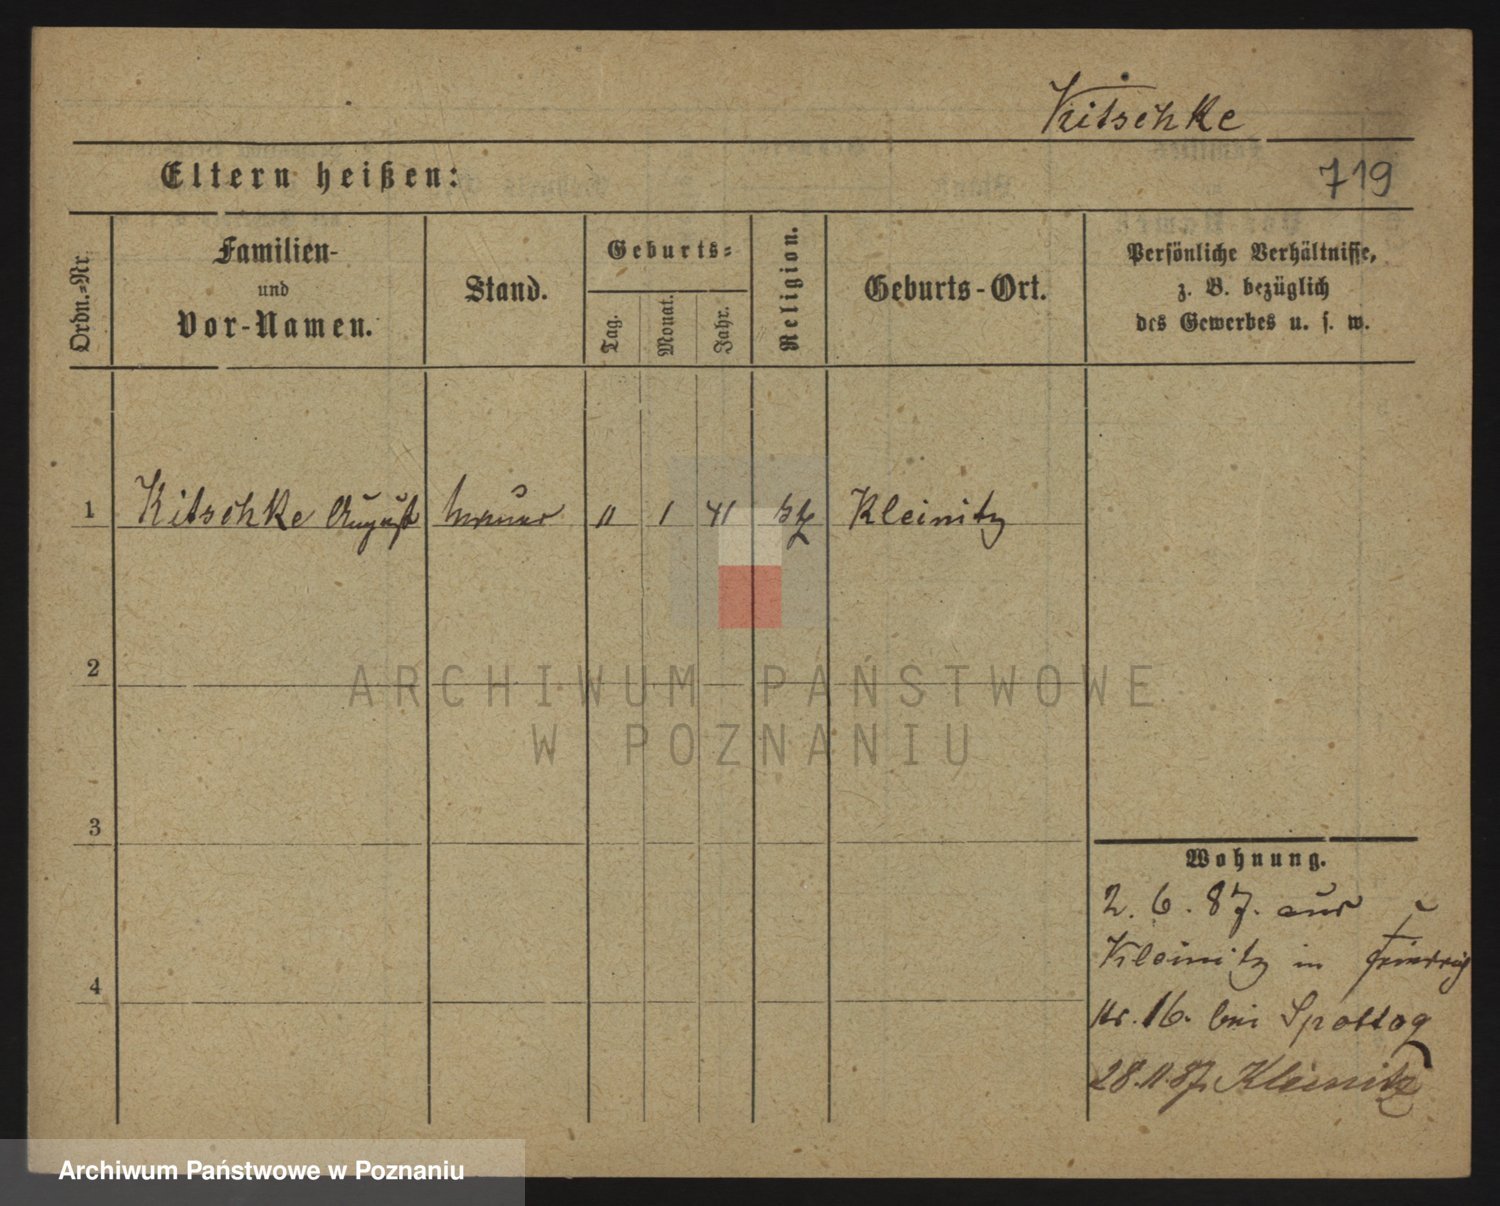 Kitschke
719
Eltern heißen:
Ordn.-Nr.
Familien-
und
Vor-Namen.
Stand.
Geburts-
Tag.
Monat.
Jahr.
Religion.
Geburts-Ort.
Persönliche Verhältnisse,
z. B. bezüglich
des Gewerbes u. s. w.
1 Kitschke August 11 1 41 Kleinitz
2
3
4
ARCHIWUM PAŃSTWOWE
W POZNANIU
Wohnung.
2. 6. 87. aus
Kleinitz in
Nr. 16. bei
28.11.87. Kleinitz
Archiwum Państwowe w Poznaniu